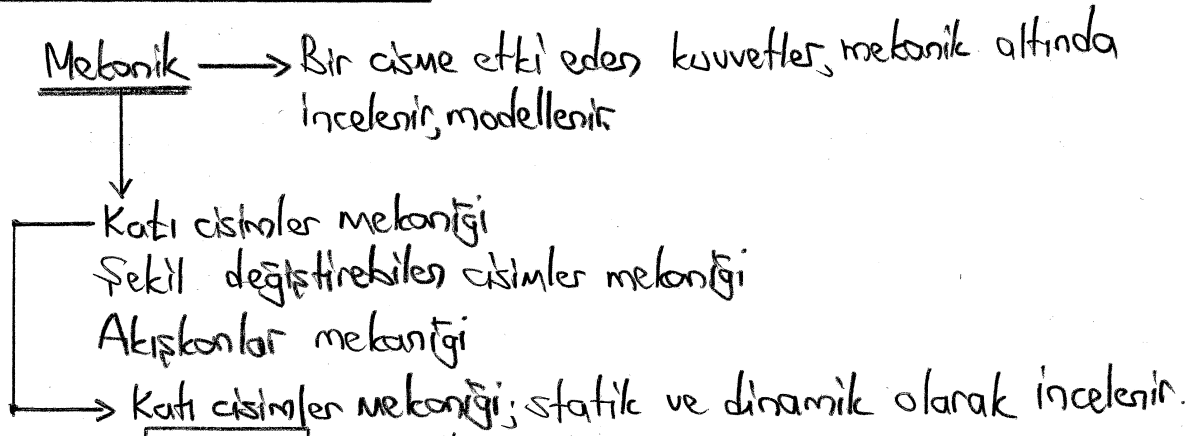 Mekanik → Bir cisme etki eden kuvvetler, mekanik altında
incelenir, modellenir.
Katı cisimler mekaniği
Şekil değiştirebilen cisimler mekaniği
Akışkanlar mekaniği
→ Katı cisimler mekaniği; statik ve dinamik olarak incelenir.